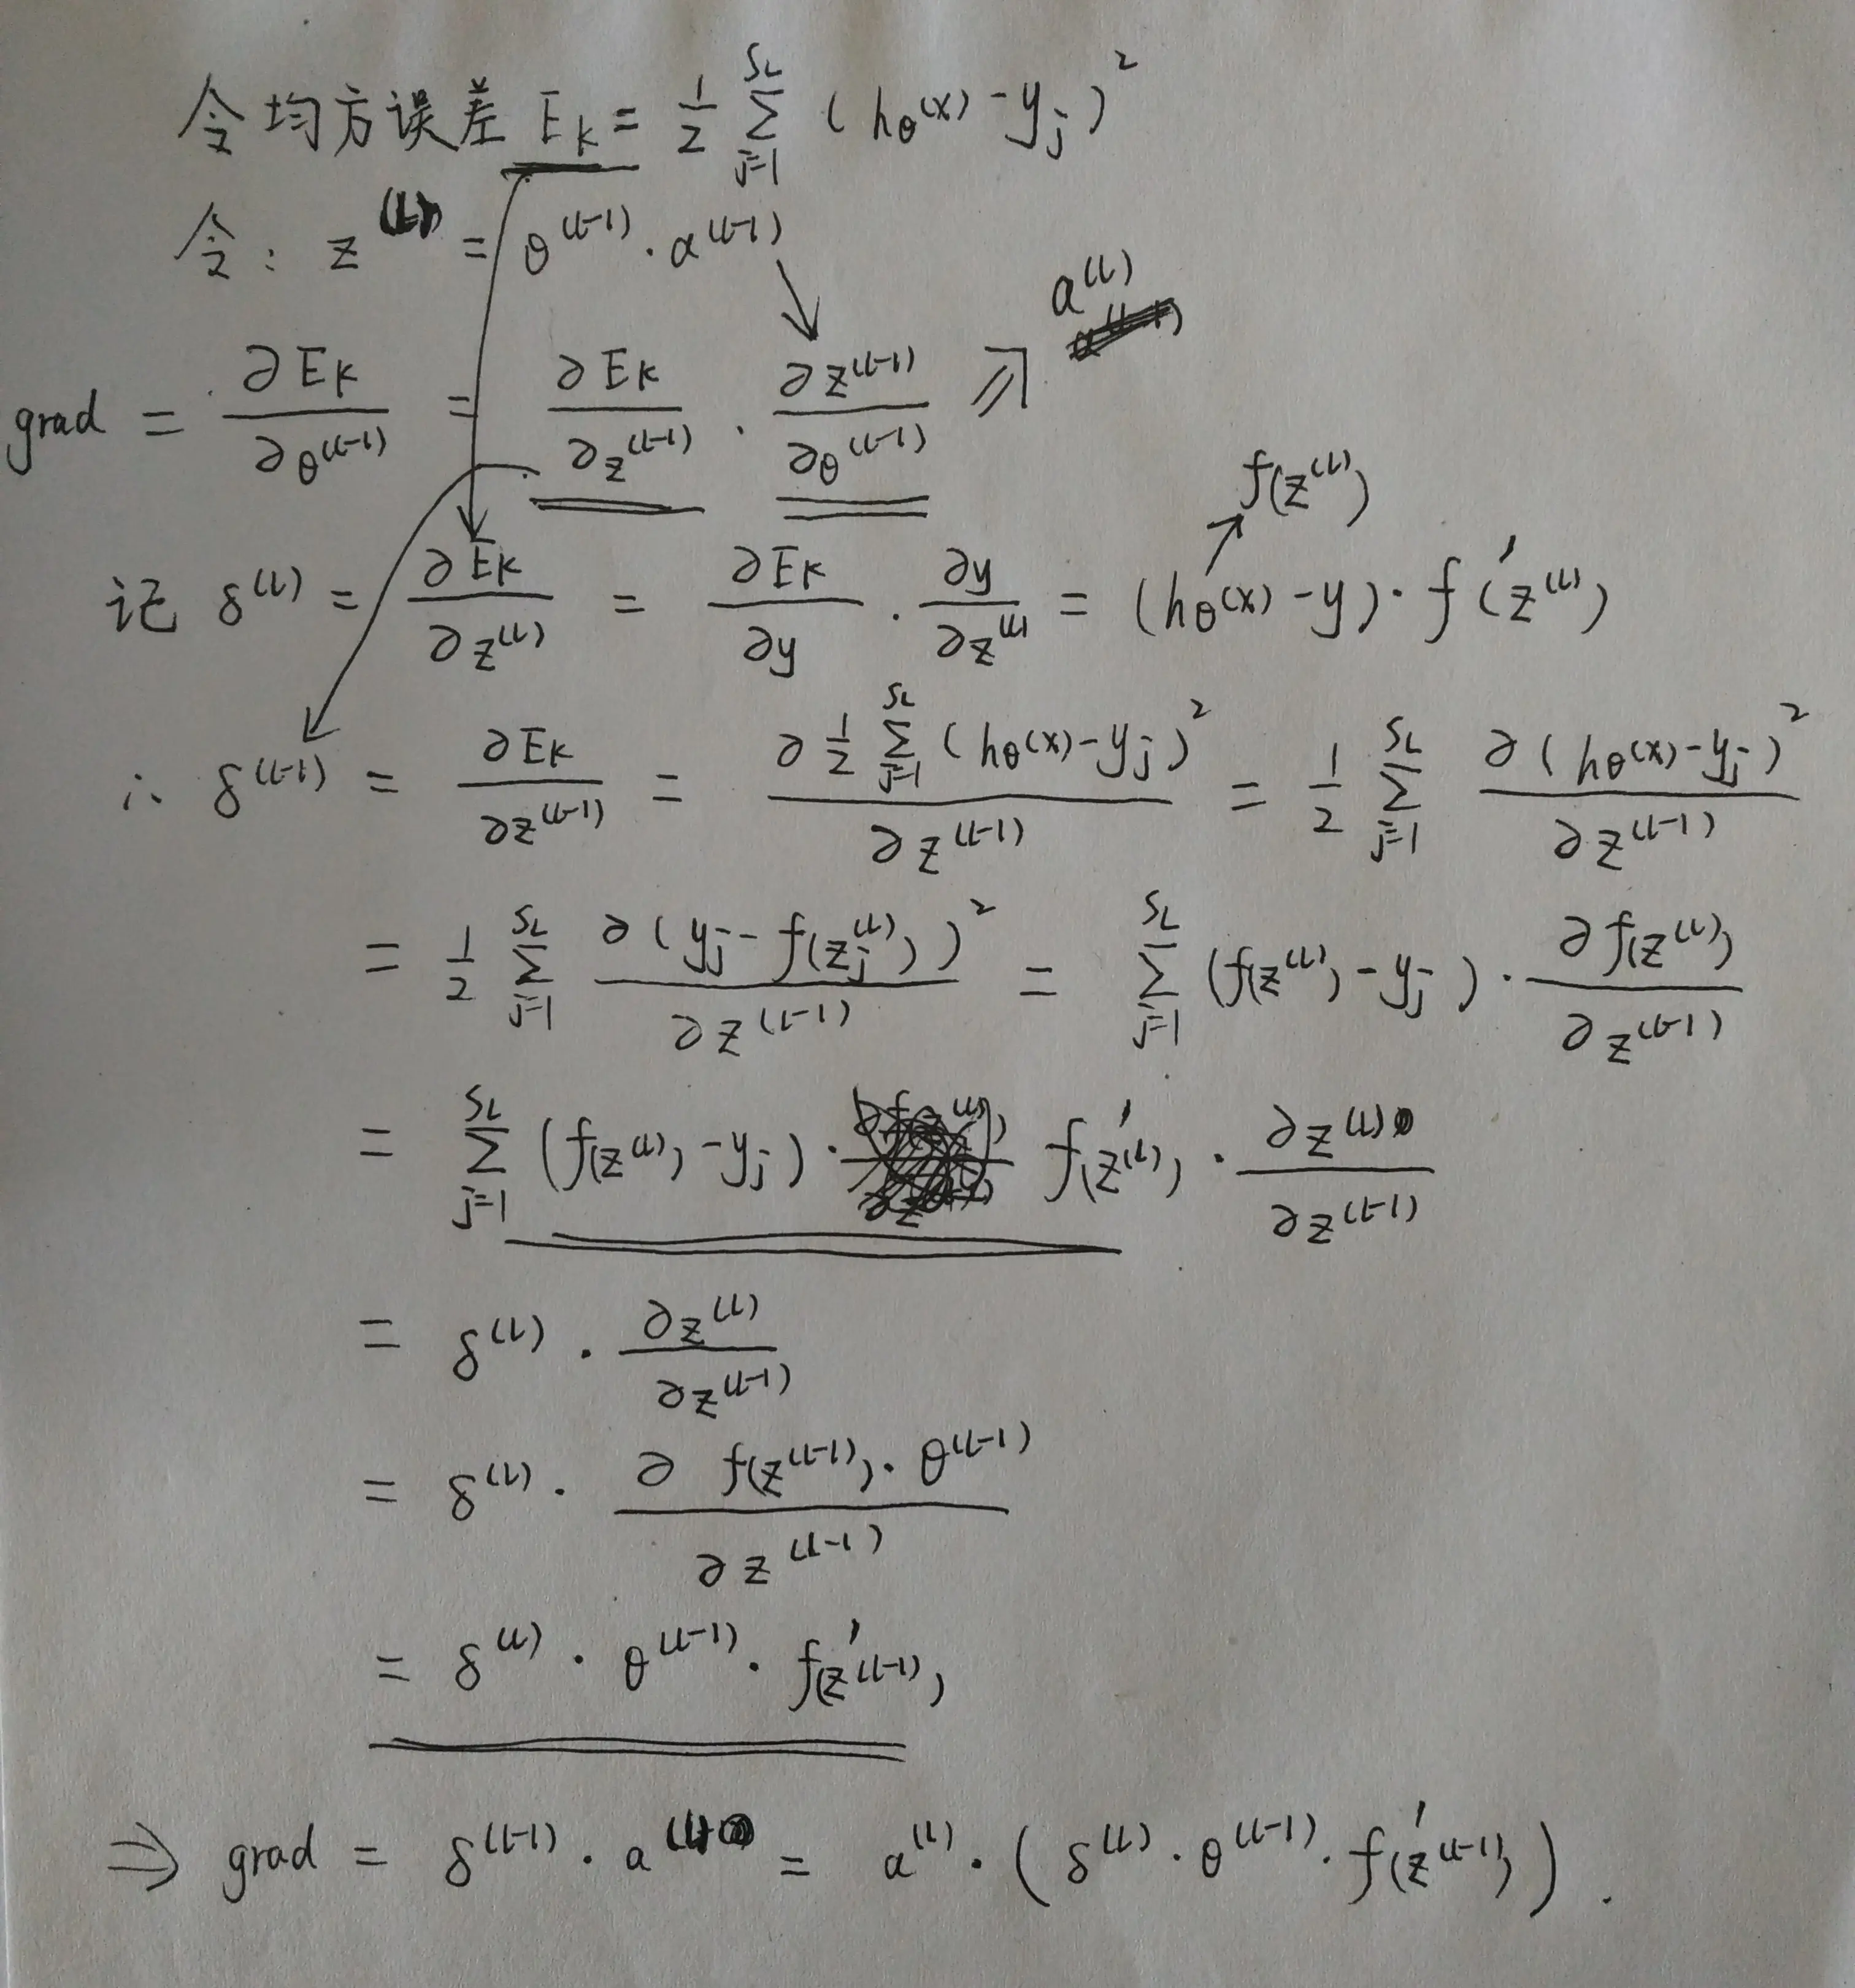 令均方误差 E_K = 1/2 Σ_{j=1}^{S_L} (h_θ(x) - y_j)^2
令: z^(L) = θ^(L-1) · a^(L-1)
a^(L)
grad = ∂E_K/∂θ^(L-1) = ∂E_K/∂z^(L-1) · ∂z^(L-1)/∂θ^(L-1) ⇗
f(z^(L))
记 δ^(L) = ∂E_K/∂z^(L) = ∂E_K/∂y · ∂y/∂z^(L) = (h_θ(x) - y) · f'(z^(L))
∴ δ^(L-1) = ∂E_K/∂z^(L-1) = ∂ 1/2 Σ_{j=1}^{S_L} (h_θ(x) - y_j)^2 / ∂z^(L-1) = 1/2 Σ_{j=1}^{S_L} ∂(h_θ(x) - y_j)^2 / ∂z^(L-1)
= 1/2 Σ_{j=1}^{S_L} ∂(y_j - f(z_j^(L)))^2 / ∂z^(L-1) = Σ_{j=1}^{S_L} (f(z^(L)) - y_j) · ∂f(z^(L)) / ∂z^(L-1)
= Σ_{j=1}^{S_L} (f(z^(L)) - y_j) · f'(z^(L)) · ∂z^(L) / ∂z^(L-1)
= δ^(L) · ∂z^(L) / ∂z^(L-1)
= δ^(L) · ∂ f(z^(L-1)) · θ^(L-1) / ∂z^(L-1)
= δ^(L) · θ^(L-1) · f'(z^(L-1))
⇒ grad = δ^(L-1) · a^(L) = a^(L) · (δ^(L) · θ^(L-1) · f'(z^(L-1))).